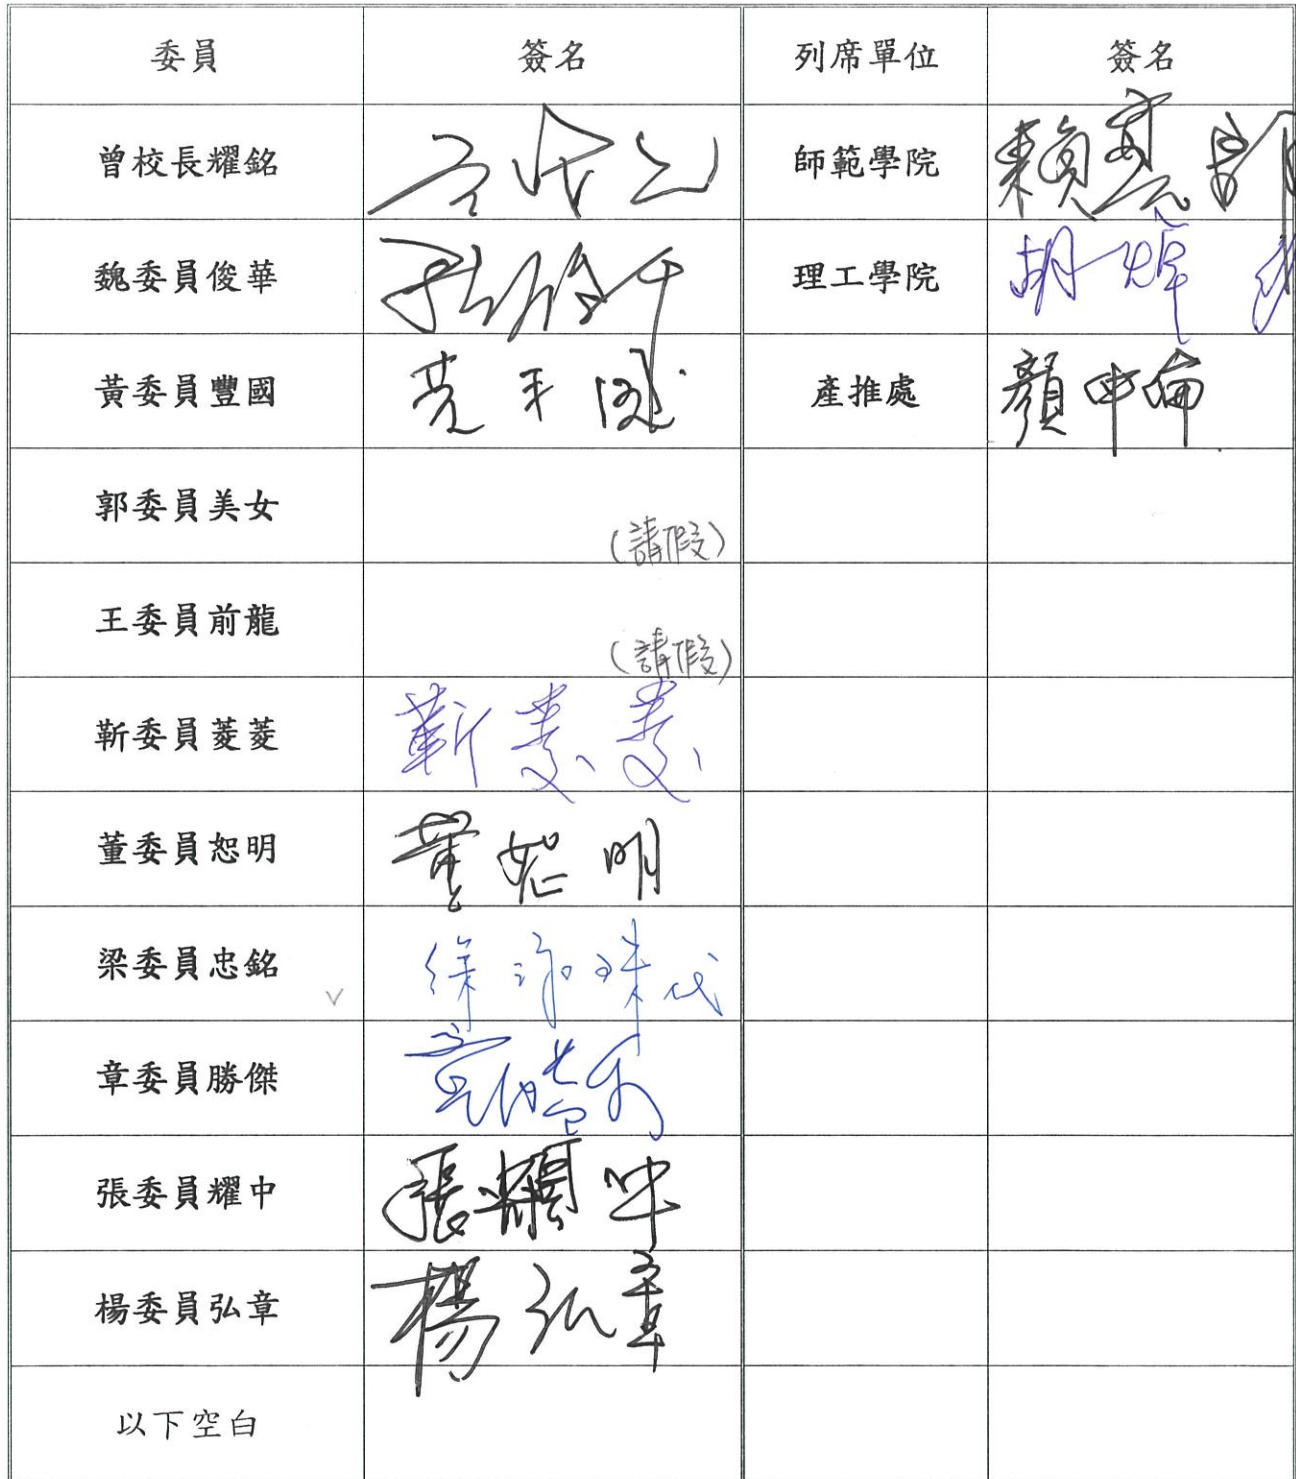 委員 簽名 列席單位 簽名
曾校長耀銘 師範學院
魏委員俊華 理工學院 胡焯
黃委員豐國 產推處 顏中倫
郭委員美女 (請假)
王委員前龍 (請假)
靳委員菱菱 靳菱菱
董委員恕明 董恕明
梁委員忠銘 徐 代
章委員勝傑
張委員耀中 張耀中
楊委員弘章 楊弘章
以下空白